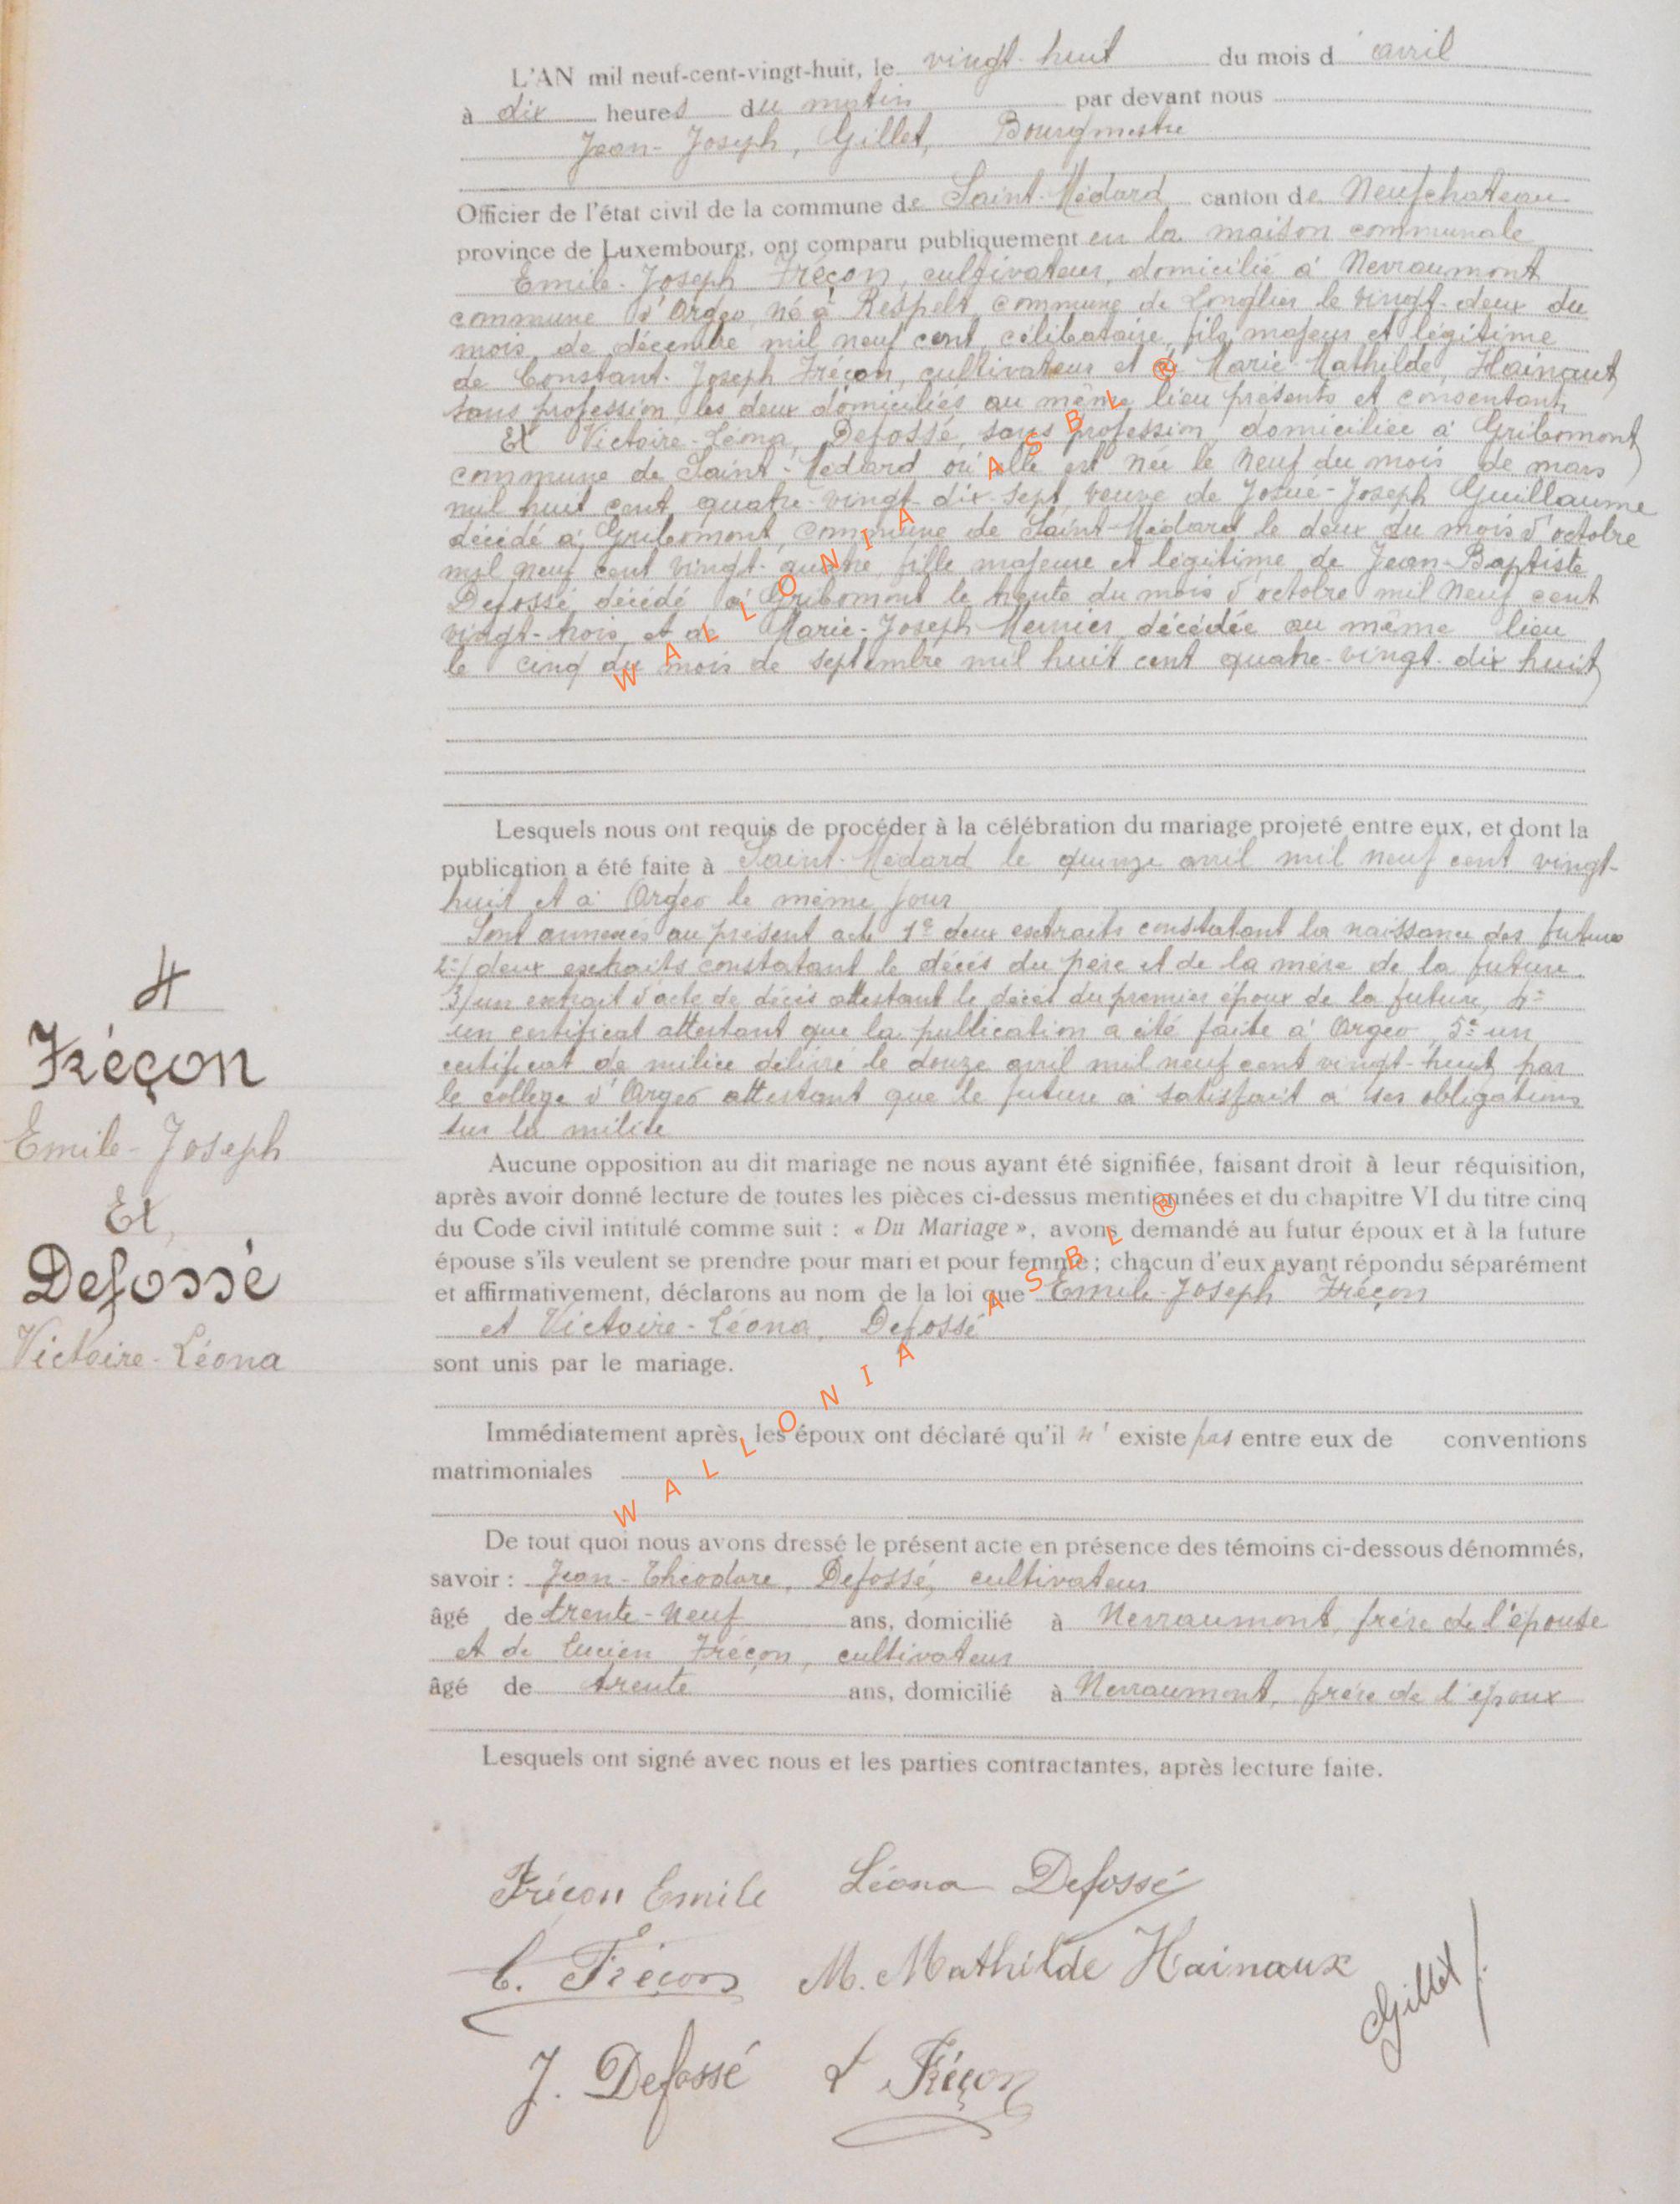 L'AN mil neuf-cent-vingt-huit, le vingt-huit du mois d'avril
à dix heures du matin par devant nous
Jean-Joseph, Gillet, Bourgmestre
Officier de l'état civil de la commune de Saint-Médard canton de Neufchateau
province de Luxembourg, ont comparu publiquement en la maison communale
Emile-Joseph Fréçon, cultivateur, domicilié à Nevraumont
commune d'Orgeo, né à Respelt, commune de Longlier le vingt-deux du
mois de décembre mil neuf cent, célibataire, fils majeur et légitime
de Constant-Joseph Fréçon, cultivateur et de Marie-Mathilde, Hainaut,
sans profession, les deux domiciliés au même lieu présents et consentants
Et Victoire-Léona, Defossé, sans profession, domiciliée à Gribomont,
commune de Saint-Médard où elle est née le neuf du mois de mars
mil huit cent quatre-vingt-dix-sept, veuve de Josué-Joseph Guillaume
décédé à Gribomont, commune de Saint-Médard le deux du mois d'octobre
mil neuf cent vingt-quatre, fille majeure et légitime de Jean-Baptiste
Defossé, décédé à Gribomont le trente du mois d'octobre mil neuf cent
vingt-trois et de Marie-Joseph Mernier, décédée au même lieu
le cinq du mois de septembre mil huit cent quatre-vingt-dix huit,
Lesquels nous ont requis de procéder à la célébration du mariage projeté entre eux, et dont la
publication a été faite à Saint-Médard le quinze avril mil neuf cent vingt-
huit et à Orgeo le même jour
Sont annexés au présent acte 1° deux extraits constatant la naissance des futurs
2°/ deux extraits constatant le décès du père et de la mère de la future
3/ un extrait d'acte de décès attestant le décès du premier époux de la future, 4°
un certificat attestant que la publication a été faite à Orgeo, 5° un
certificat de milice délivré le douze avril mil neuf cent vingt-huit par
le collège d'Orgeo attestant que le future a satisfait à ses obligations
sur la milice
4
Fréçon
Emile-Joseph
Et
Defossé
Victoire-Léona
Aucune opposition au dit mariage ne nous ayant été signifiée, faisant droit à leur réquisition,
après avoir donné lecture de toutes les pièces ci-dessus mentionnées et du chapitre VI du titre cinq
du Code civil intitulé comme suit : « Du Mariage », avons demandé au futur époux et à la future
épouse s'ils veulent se prendre pour mari et pour femme ; chacun d'eux ayant répondu séparément
et affirmativement, déclarons au nom de la loi que Emile-Joseph Fréçon
et Victoire-Léona, Defossé
sont unis par le mariage.
Immédiatement après, les époux ont déclaré qu'il n'existe pas entre eux de conventions
matrimoniales
De tout quoi nous avons dressé le présent acte en présence des témoins ci-dessous dénommés,
savoir : Jean-Théodore, Defossé, cultivateur
âgé de trente-neuf ans, domicilié à Nevraumont, frère de l'épouse
et de Lucien Fréçon, cultivateur
âgé de trente ans, domicilié à Nevraumont, frère de l'époux
Lesquels ont signé avec nous et les parties contractantes, après lecture faite.
Fréçon Emile Léona Defossé
C. Fréçon M. Mathilde Hainaux
Gillet
J. Defossé L Fréçon
WALLONIA ASBL ®
WALLONIA ASBL ®